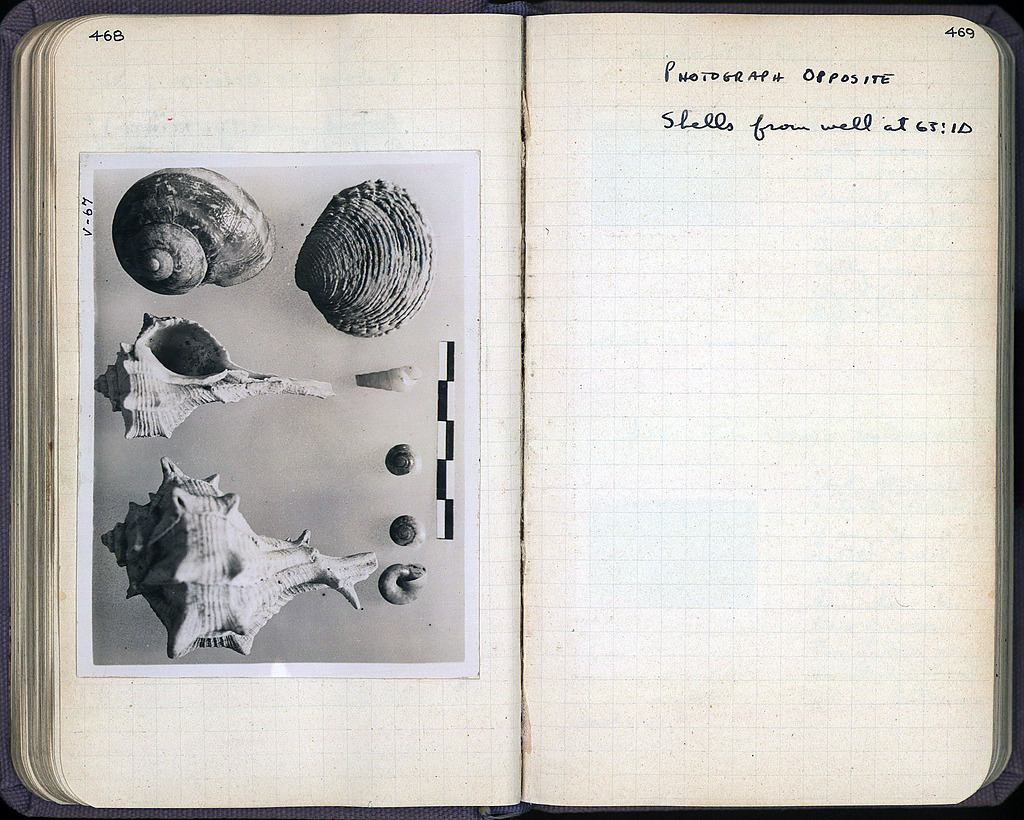 468
V-67
469
PHOTOGRAPH OPPOSITE
Shells from well at 63:1Δ